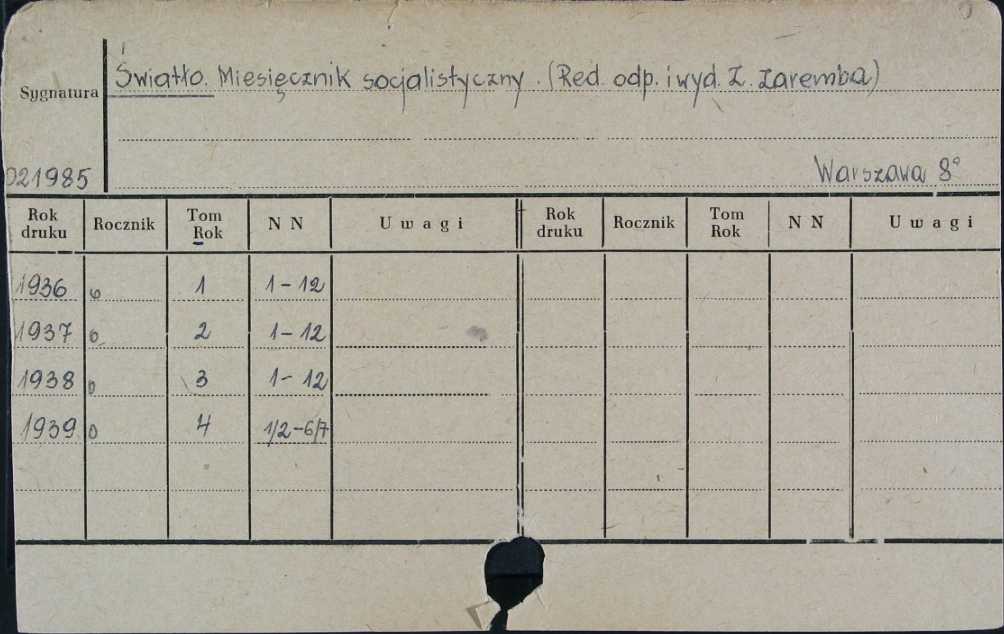 Światło. Miesięcznik socjalistyczny. (Red. odp. i wyd. Z. Zaremba)
Sygnatura
021985
Warszawa 8°
Rok druku Rocznik Tom Rok N N Uwagi Rok druku Rocznik Tom Rok N N Uwagi
1936 0 1 1-12
1937 0 2 1-12
1938 0 3 1-12
1939 0 4 1/2-6/7